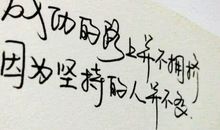 成功的路上并不拥挤
因为坚持的人并不多